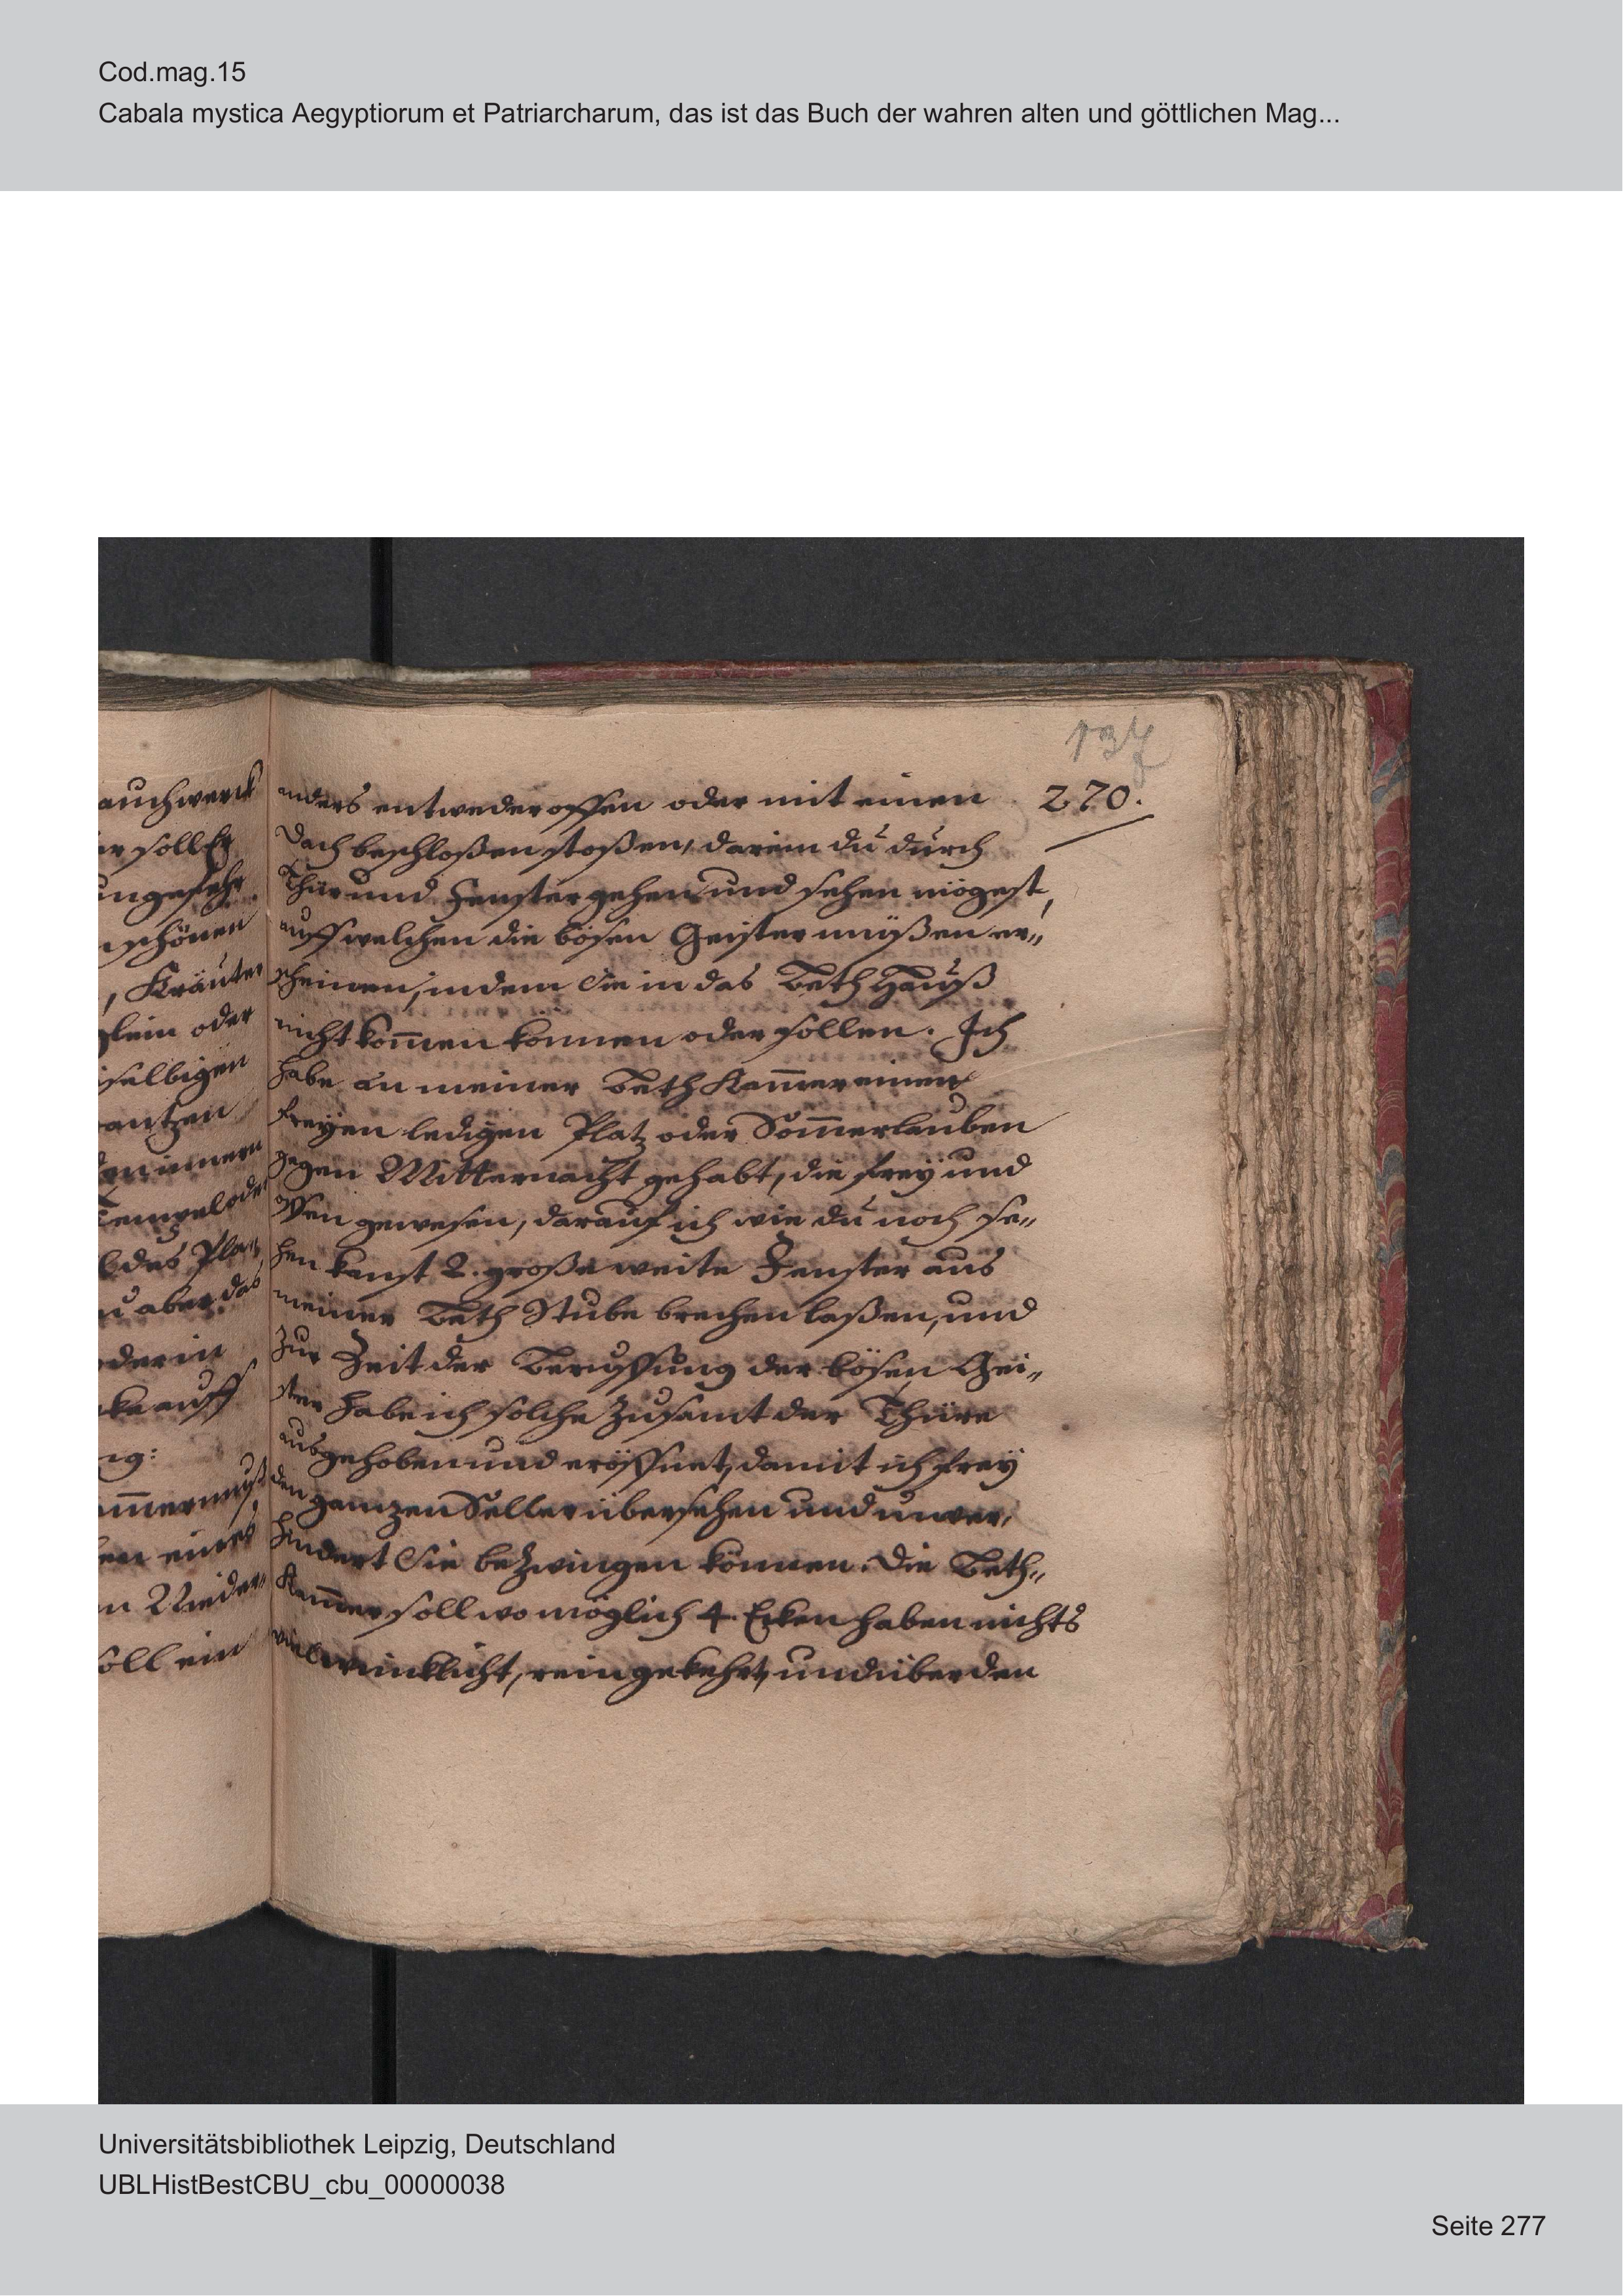 Cod.mag.15
Cabala mystica Aegyptiorum et Patriarcharum, das ist das Buch der wahren alten und göttlichen Mag...
137
270.
auchwerck
er soll Er
ungefehr
schönen
, Kräuter
oder
selbigen
antzen
innern
des Pla„
u aber das
oder in
auff
ig:
ammer muß
en eines
n Nieder„
soll ein
anders entweder offen oder mit einen
Dach beschloßen stoßen, darein du durch
Thür und Fenster gehen und sehen mögest,
auff welchen die bösen Geister müßen er„
scheinen, indem Sie in das Beth Hauß
nicht kom̄en können oder sollen. Ich
habe an meiner Beth Kam̄er einen
freyen ledigen Platz oder Som̄erlauben
gegen Mitternacht gehabt, die frey und
offen gewesen, darauf ich wie du noch se„
hen kanst 2. große weite Fenster aus
meiner Beth Stube brechen laßen, und
Zur Zeit der Beruffung der bösen Gei„
ster habe ich solche Zusamt der Thüre
ausgehoben und eröffnet, damit ich frey
den ganzen Söller übersehen und unver„
hindert Sie beZwingen können. Die Beth„
Kam̄er soll wo möglich 4. Ecken haben nichts
vielwinklicht, rein gekehrt, und über den
Universitätsbibliothek Leipzig, Deutschland
UBLHistBestCBU_cbu_00000038
Seite 277